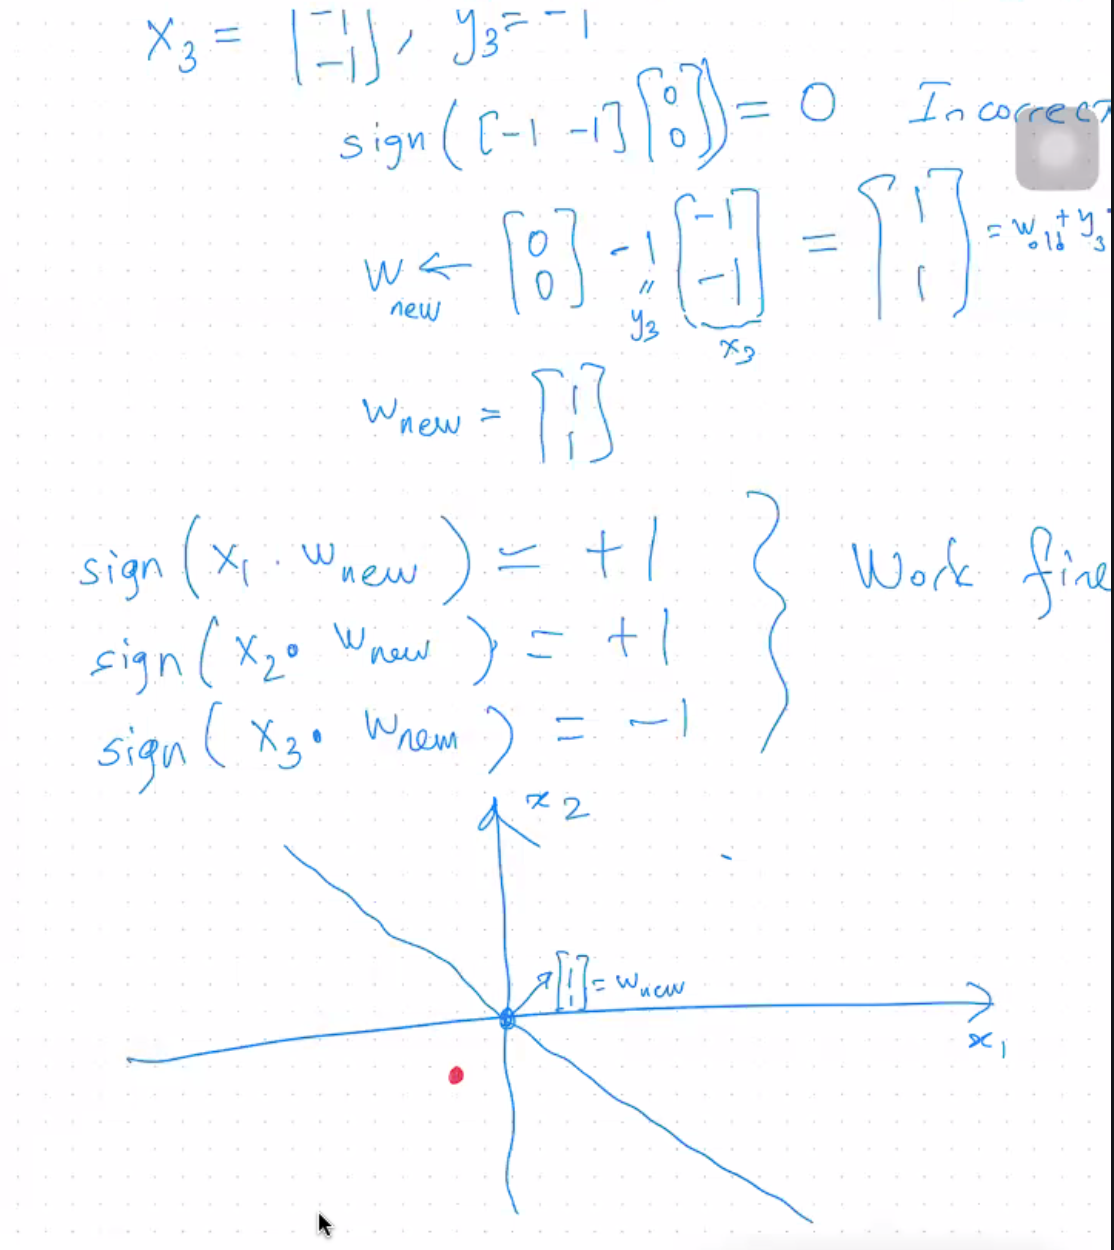 x₃ = [-1 -1], y₃ = -1
sign([-1 -1][0 0]) = 0 Incorrect
w new ← [0 0] -1 [-1 -1] = [1 1] = w old + y₃
" y₃ x₃
w new = [1 1]
sign(x₁ · w new) = +1
sign(x₂ · w new) = +1 Work fine
sign(x₃ · w new) = -1
x₂
[1 1] = w new
x₁